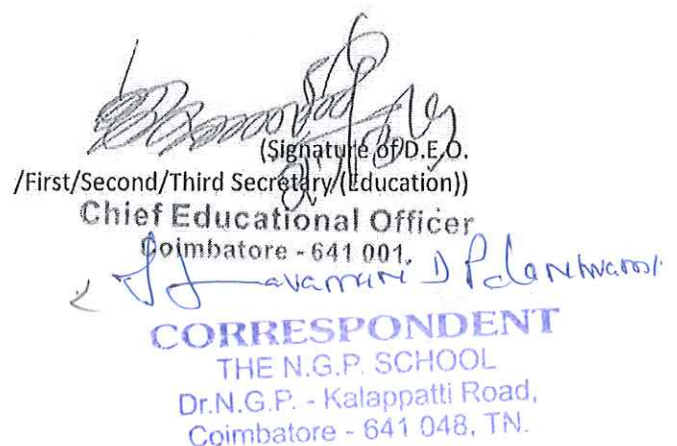 (Signature of D.E.O.
/First/Second/Third Secretary (Education))
Chief Educational Officer
Coimbatore - 641 001.
CORRESPONDENT
THE N.G.P. SCHOOL
Dr.N.G.P. - Kalappatti Road,
Coimbatore - 641 048, TN.